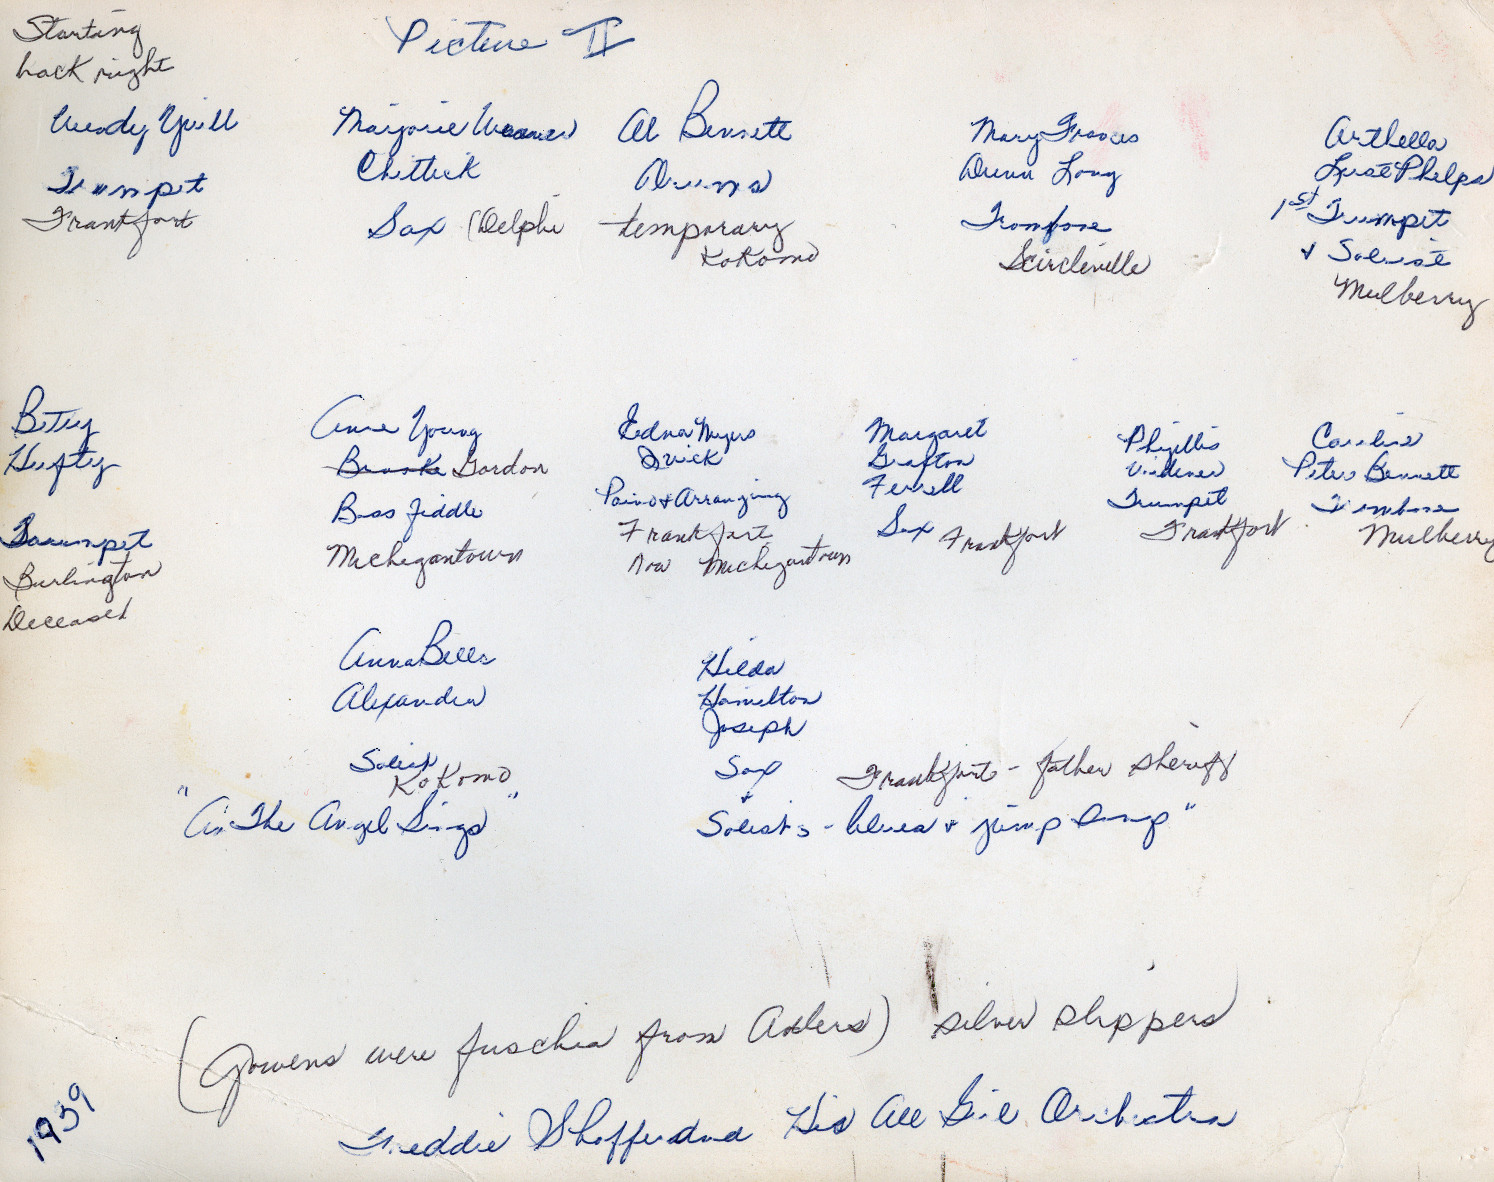 Starting
back right
Picture II
Woody
Trumpet
Frankfort
Marjorie
Chittick
Sax (Delphi
Al Bennett
Drums
temporary
Kokomo
Mary Frances
Dunn Long
Trombone
Scircleville
Arthella
Phelps
1st Trumpet
+ Soloist
Mulberry
Betty
Hufty
Trumpet
Burlington
Deceased
Anne Young
Gordon
Bass fiddle
Michigantown
Edna Myers
Quick
Paino + Arranging
Frankfort
now Michigantown
Margaret
Grafton
Ferrell
Sax Frankfort
Phyllis
Trumpet
Frankfort
Caroline
Peters Bennett
Trombone
Mulberry
AnnaBelle
Alexander
Soloist
Kokomo
"An The Angel Sings"
Hilda
Hamilton
Joseph
Sax Frankfort - father sheriff
+
Soloist - blues + jump "
(Gowens were fuschia from Adlers) silver slippers
1939
Freddie Shaffer and His All Girl Orchestra